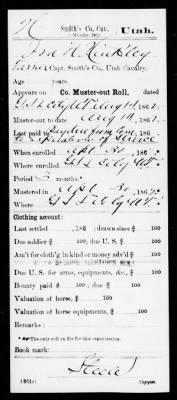 H Smith's Co. Cav. Utah.
Ira N. Hinckley
Capt. Smith's Co., Utah Cavalry.
Age years.
Appears on Co. Muster-out Roll, dated
G S L City U T Aug 14, 1862.
Muster-out to date Aug 14, 1862.
Last paid to
to expiration of service
When enrolled Apl 30, 1862.
Where enrolled G S L City U T
Period 3 months.
Mustered in Apl 30, 1862.
Where G S L City U T
Clothing account:
Last settled , 186 ; drawn since $ 100
Due soldier $ 100; due U. S. $ 100
Am't for cloth'g in kind or money adv'd $ 100
Due U. S. for arms, equipments, &c., $ 100
Bounty paid $ 100; due $ 100
Valuation of horse, $ 100
Valuation of horse equipments, $ 100
Remarks:
*The only roll on file for this organization.
Book mark:
Copyist.